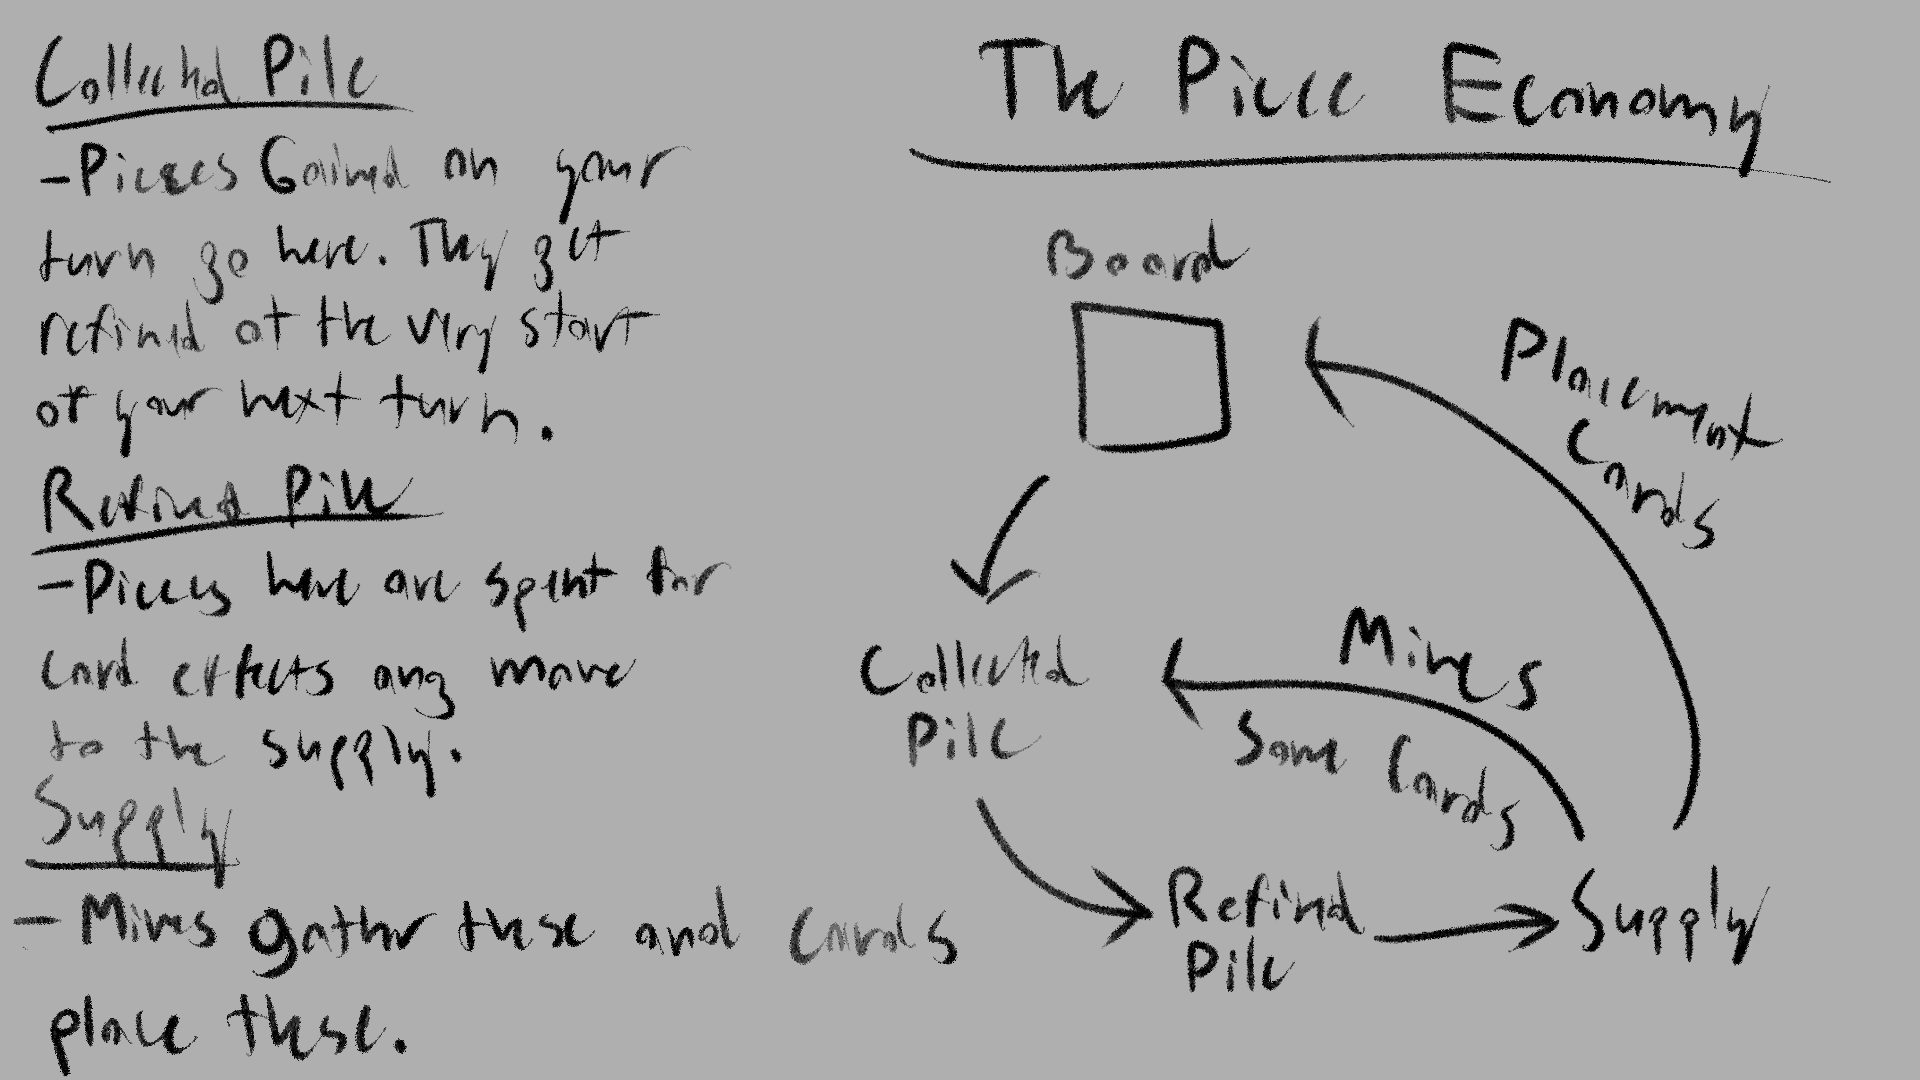 Collected Pile
-Pieces Gained on your
turn go here. They get
refined at the very start
of your next turn.
Refined Pile
-Pieces here are spent for
card effects ang move
to the supply.
Supply
- Mines gather these and Cards
place these.
The Piece Economy
Board
Placement
Cards
Mines
Some Cards
Collected
Pile
Refined
Pile
Supply